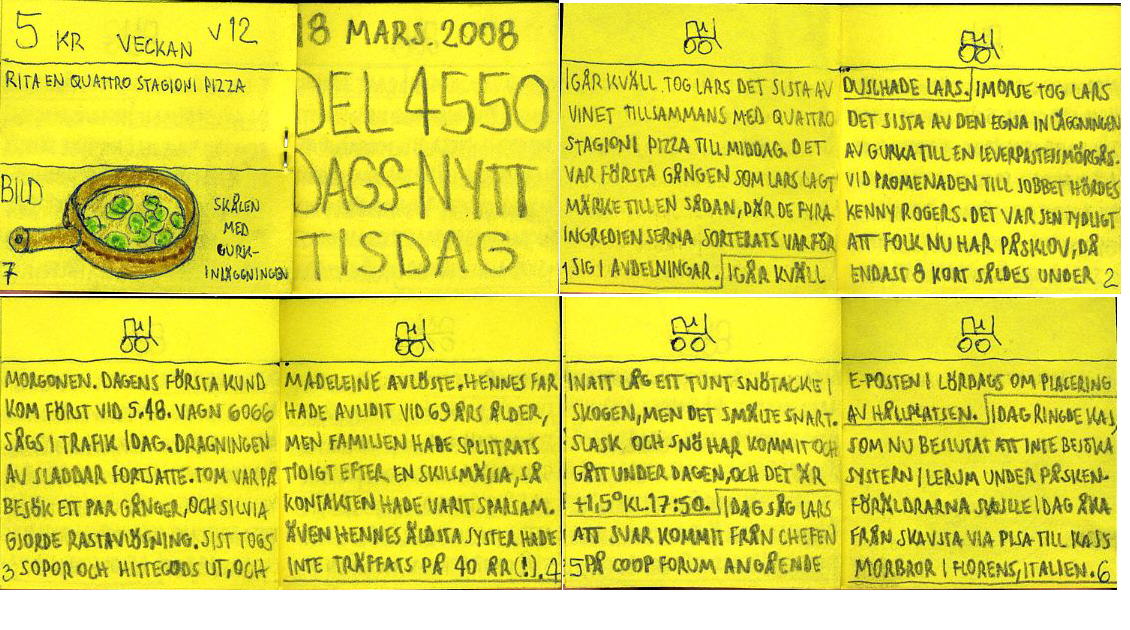 5 KR VECKAN V12
RITA EN QUATTRO STAGIONI PIZZA
BILD
SKÅLEN
MED
GURK-
INLÄGGNINGEN
7
18 MARS. 2008
DEL 4550
DAGS-NYTT
TISDAG
IGÅR KVÄLL TOG LARS DET SISTA AV
VINET TILLSAMMANS MED QUATTRO
STAGIONI PIZZA TILL MIDDAG. DET
VAR FÖRSTA GÅNGEN SOM LARS LAGT
MÄRKE TILL EN SÅDAN, DÄR DE FYRA
INGREDIENSERNA SORTERATS VAR FÖR
1 SIG I AVDELNINGAR. IGÅR KVÄLL
DUSCHADE LARS. IMORSE TOG LARS
DET SISTA AV DEN EGNA INLÄGGNINGEN
AV GURKA TILL EN LEVERPASTEJSMÖRGÅS.
VID PROMENADEN TILL JOBBET HÖRDES
KENNY ROGERS. DET VAR SEN TYDLIGT
ATT FOLK NU HAR PÅSKLOV, DÅ
ENDAST 8 KORT SÅLDES UNDER 2
MORGONEN. DAGENS FÖRSTA KUND
KOM FÖRST VID 5.48. VAGN 6066
SÅGS I TRAFIK IDAG. DRAGNINGEN
AV SLADDAR FORTSATTE. TOM VAR PÅ
BESÖK ETT PAR GÅNGER, OCH SILVIA
GJORDE RASTAVLÖSNING. SIST TOGS
3 SOPOR OCH HITTEGODS UT, OCH
MADELEINE AVLÖSTE. HENNES FAR
HADE AVLIDIT VID 69 ÅRS ÅLDER,
MEN FAMILJEN HADE SPLITTRATS
TIDIGT EFTER EN SKILSMÄSSA, SÅ
KONTAKTEN HADE VARIT SPARSAM.
ÄVEN HENNES ÄLDSTA SYSTER HADE
INTE TRÄFFATS PÅ 40 ÅR(!). 4
INATT LÅG ETT TUNT SNÖTÄCKE I
SKOGEN, MEN DET SMÄLTE SNART.
SLASK OCH SNÖ HAR KOMMIT OCH
GÅTT UNDER DAGEN, OCH DET ÄR
+1,5° KL.17:50. IDAG SÅG LARS
ATT SVAR KOMMIT FRÅN CHEFEN
5 PÅ COOP FORUM ANGÅENDE
E-POSTEN I LÖRDAGS OM PLACERING
AV HÅLLPLATSEN. IDAG RINGDE KAS,
SOM NU BESLUTAT ATT INTE BESÖKA
SYSTERN I LERUM UNDER PÅSKEN.
FÖRÄLDRARNA SKULLE IDAG ÅKA
FRÅN SKAVSTA VIA PISA TILL KAS'S
MORBROR I FLORENS, ITALIEN. 6